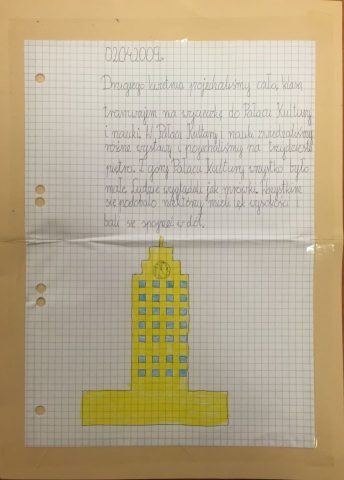 02.04.2009r.
Drugiego kwietnia pojechaliśmy całą klasą
tramwajem na wycieczkę do Pałacu Kultury
i nauki. W Pałacu Kultury i nauki zwiedzaliśmy
różne wystawy i pojechaliśmy na trzydzieste
piętro. Z góry Pałacu Kultury wszystko było
małe. Ludzie wyglądali jak mrówki.
się podobało niektórzy mieli lęk wysokości i
bali się spojrzeć w dół.